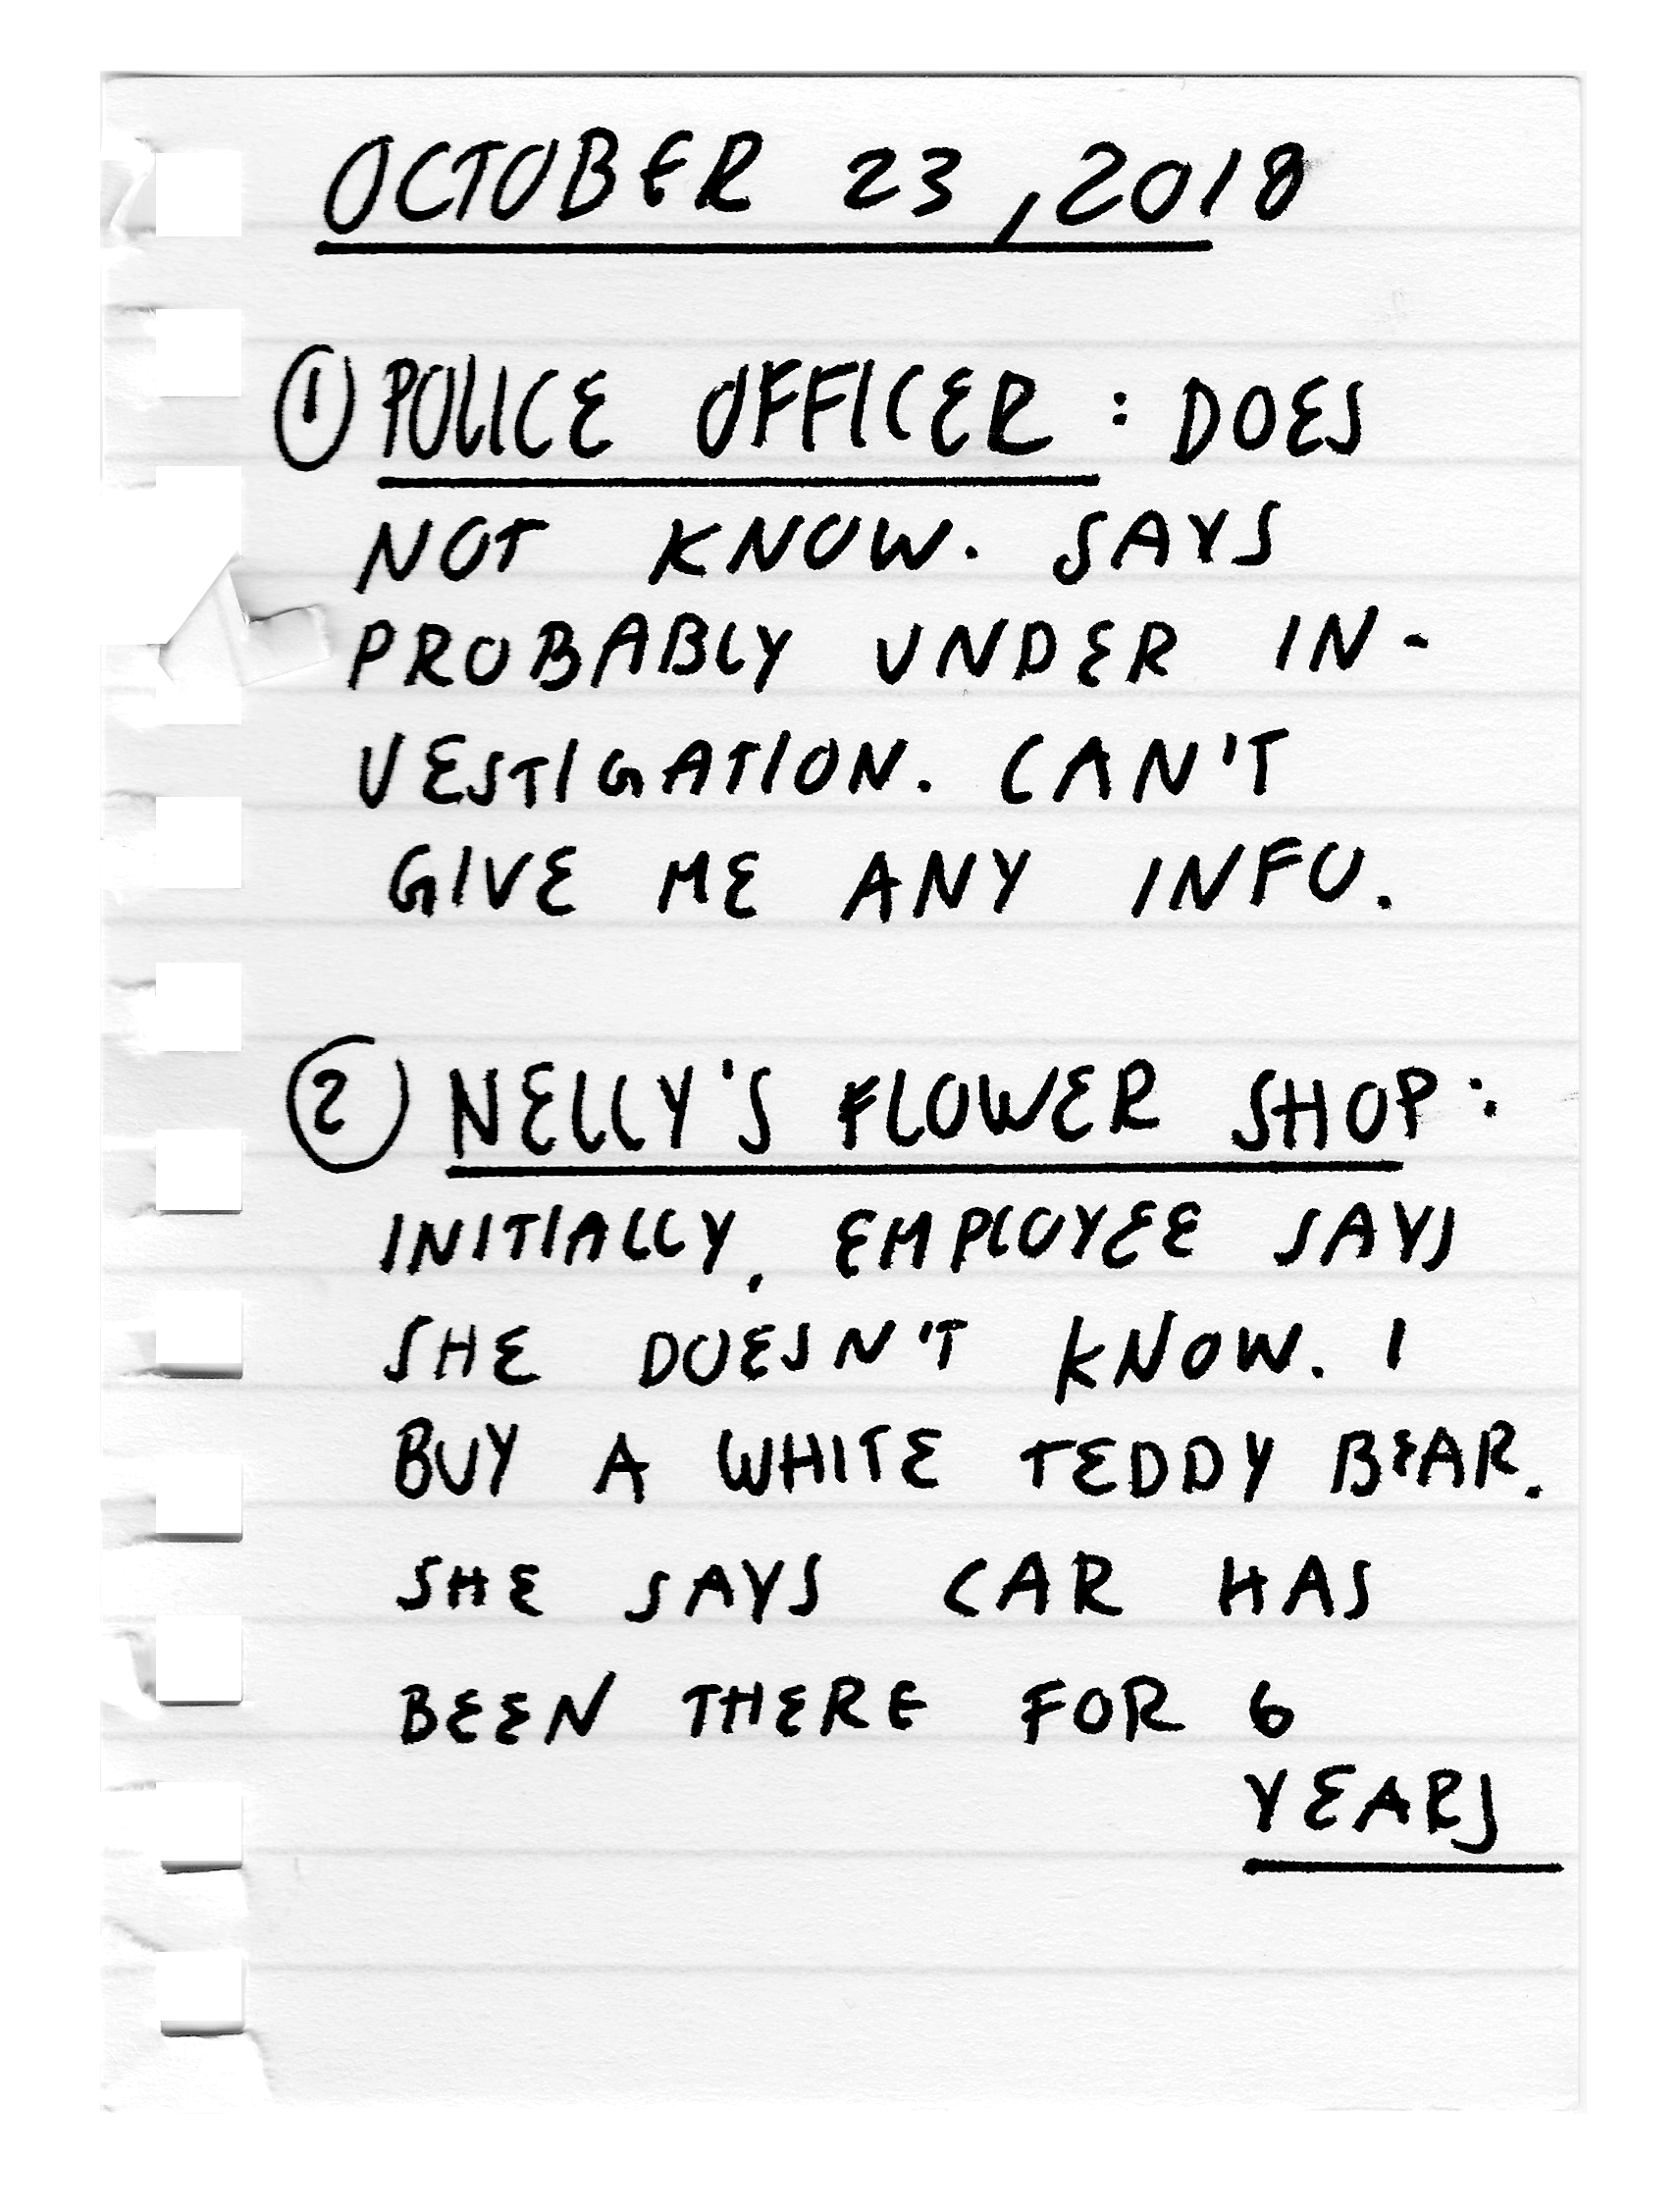 OCTOBER 23, 2018
① POLICE OFFICER : DOES
NOT KNOW. SAYS
PROBABLY UNDER IN-
VESTIGATION. CAN'T
GIVE ME ANY INFO.
② NELLY'S FLOWER SHOP :
INITIALLY, EMPLOYEE SAYS
SHE DOESN'T KNOW. I
BUY A WHITE TEDDY BEAR.
SHE SAYS CAR HAS
BEEN THERE FOR 6
YEARS